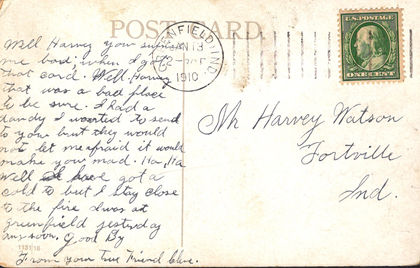 POST CARD
GREENFIELD, IND.
JAN 13
2-
1910
U.S. POSTAGE
ONE CENT
Well Harvey your
me bad, when I got
that card. Well Harvey
that was a bad place
to be sure. I had a
dandy I wanted to send
to you but they would
not let me afraid it would
make you mad. Ha, Ha
Well I have got a
cold to but I stay close
to the fire I was at
greenfield yesterday
Good By
From your True Friend
Mr Harvey Watson
Fortville
Ind.